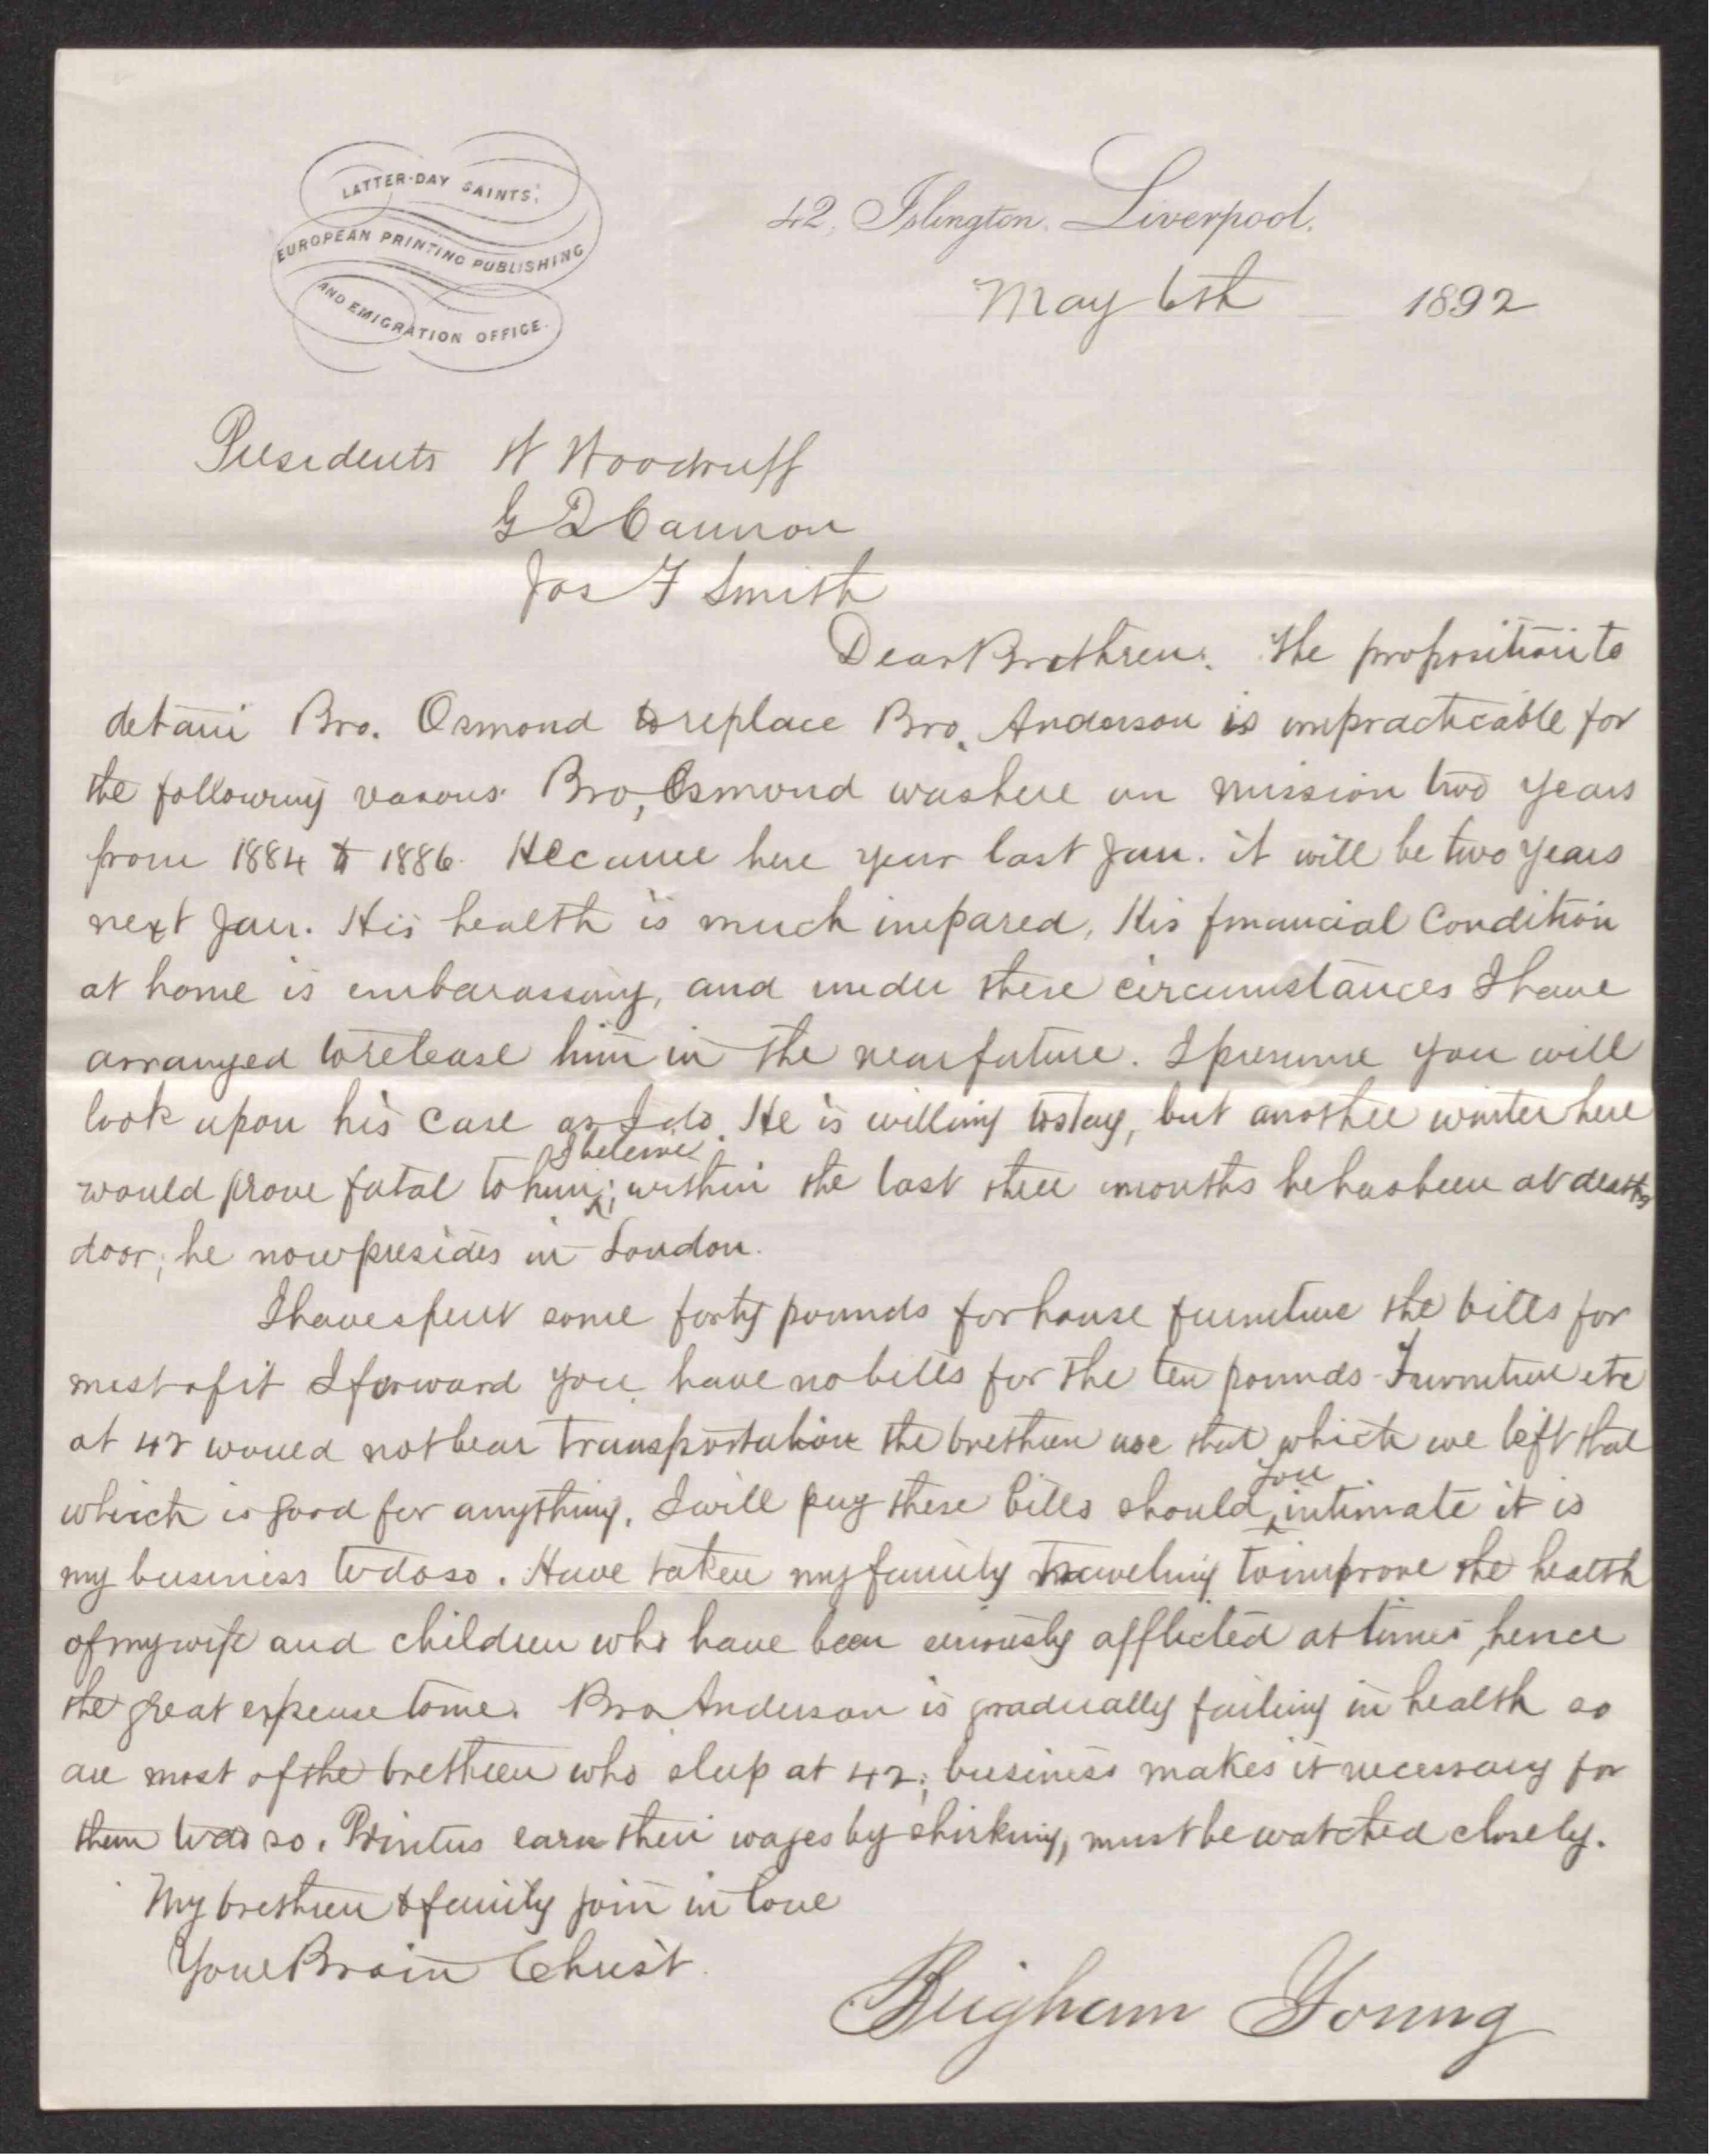 LATTER-DAY SAINTS'
EUROPEAN PRINTING PUBLISHING
AND EMIGRATION OFFICE.
42, Islington, Liverpool,
May 6th 1892
Presidents W Woodruff
G Q Cannon
Jos F Smith
Dear Brethren. The proposition to
detain Bro. Osmond to replace Bro. Anderson is impracticable for
the following reasons. Bro, Osmond was here on mission two years
from 1884 to 1886. He came here year last Jan. it will be two years
next Jan. His health is much impared, His financial Condition
at home is embarassing, and under these circumstances I have
arranged to release him in the near future. I presume you will
look upon his case as I do. He is willing to stay, but another winter here
I beleive
would prove fatal to him; within the last three months he has been at deaths
door; he now presides in London.
I have spent some forty pounds for house furniture the bills for
most of it I forward you have no bills for the ten pounds - Furniture etc
at 42 would not bear transportation the brethren use that which we left that
you
which is good for anything. I will pay these bills should intimate it is
my business to do so. Have taken my family traveling to improve the health
of my wife and children who have been seriously afflicted at times, hence
the great expense to me. Bro Anderson is gradually failing in health so
are most of the brethren who sleep at 42; business makes it necessary for
them to do so. Printers earn their wages by shirking, must be watched closely.
My brethren & family join in love
Your Bro in Christ.
Brigham Young